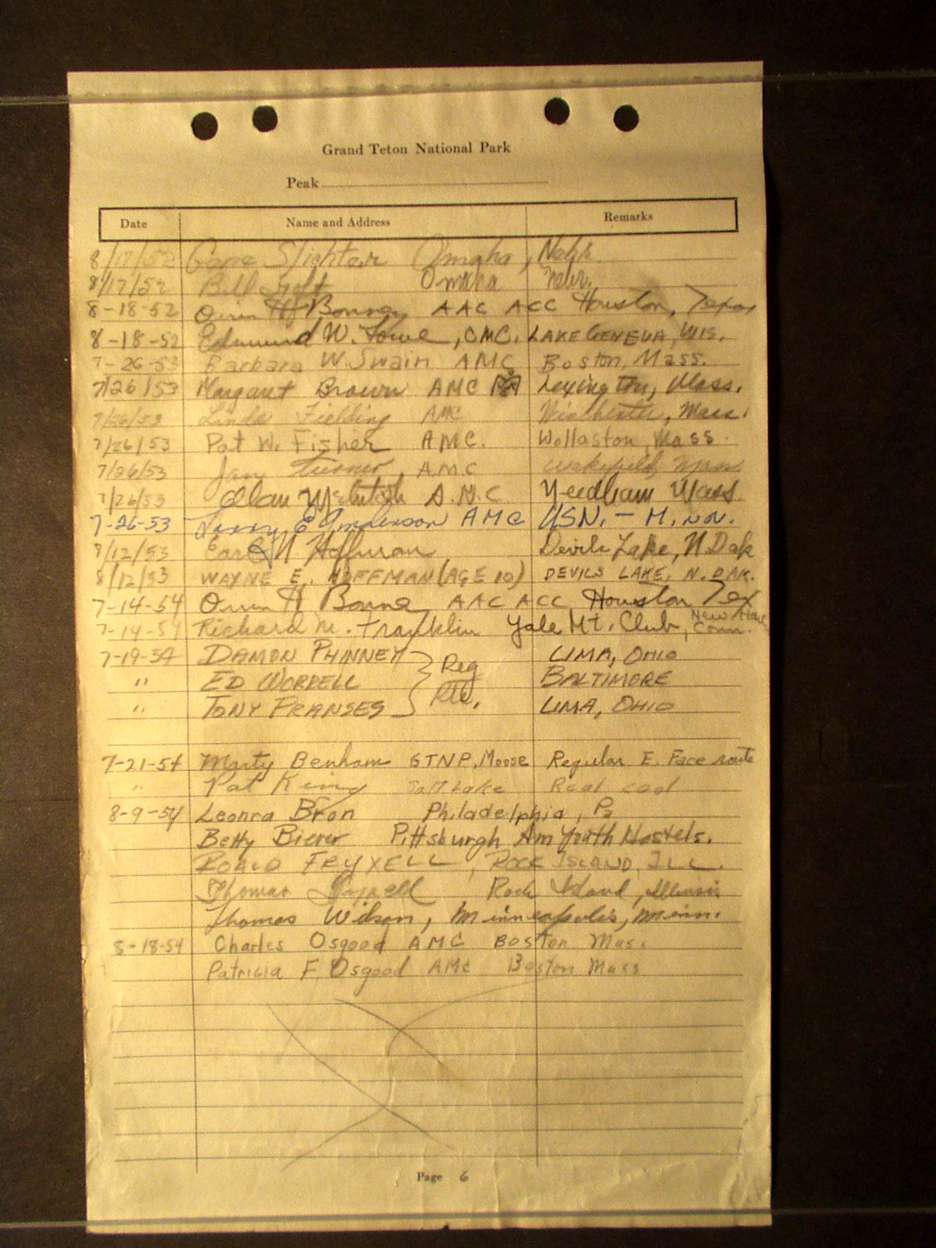 Grand Teton National Park
Peak
Date Name and Address Remarks
8/17/52 Gene Slightam Omaha, Nebr.
8/17/52 Bill Omaha Nebr.
8-18-52 Orrin H Bonney AAC ACC Houston, Texas
8-18-52 Edmund W. Lowe, CMC. LAKE GENEVA, WIS.
7-26-53 Barbara W. Swain AMC Boston, Mass.
7/26/53 Margaret Brown AMC Lexington, Mass.
7/26/53 Linda Fielding AMC Winchester, Mass.
7/26/53 Pat W. Fisher AMC. Wollaston, Mass.
7/26/53 Turner, AMC Wakefield, Mass
7/26/53 Allan McIntosh A.M.C Needham Mass.
7-26-53 Larry E Anderson AMC USN. -
8/12/53 Earl N Hoffman Devils Lake, N. Dak
8/12/53 WAYNE E. HOFFMAN (AGE 10) DEVILS LAKE, N. DAK.
7-14-54 Orrin H Bonney AAC ACC Houston Tex
7-14-54 Richard M. Franklin Yale Mt. Club, New Haven Conn.
7-19-54 DAMON PHINNEY Reg LIMA, OHIO
" ED WORRELL Rte. BALTIMORE
" TONY FRANSES LIMA, OHIO
7-21-54 Marty Benham GTNP, Moose Regular E. Face route
" Pat King Salt Lake Real cool
8-9-54 Leonra Bron Philadelphia, Pa
Betty Bierer Pittsburgh Am Youth Hostels.
ROALD FRYXELL, ROCK ISLAND ILL.
Thomas Fryxell Rock Island, Illinois
Thomas Wilson, Minneapolis, Minn.
8-18-54 Charles Osgood AMC Boston Mass
Patricia F Osgood AMC Boston Mass
Page 6